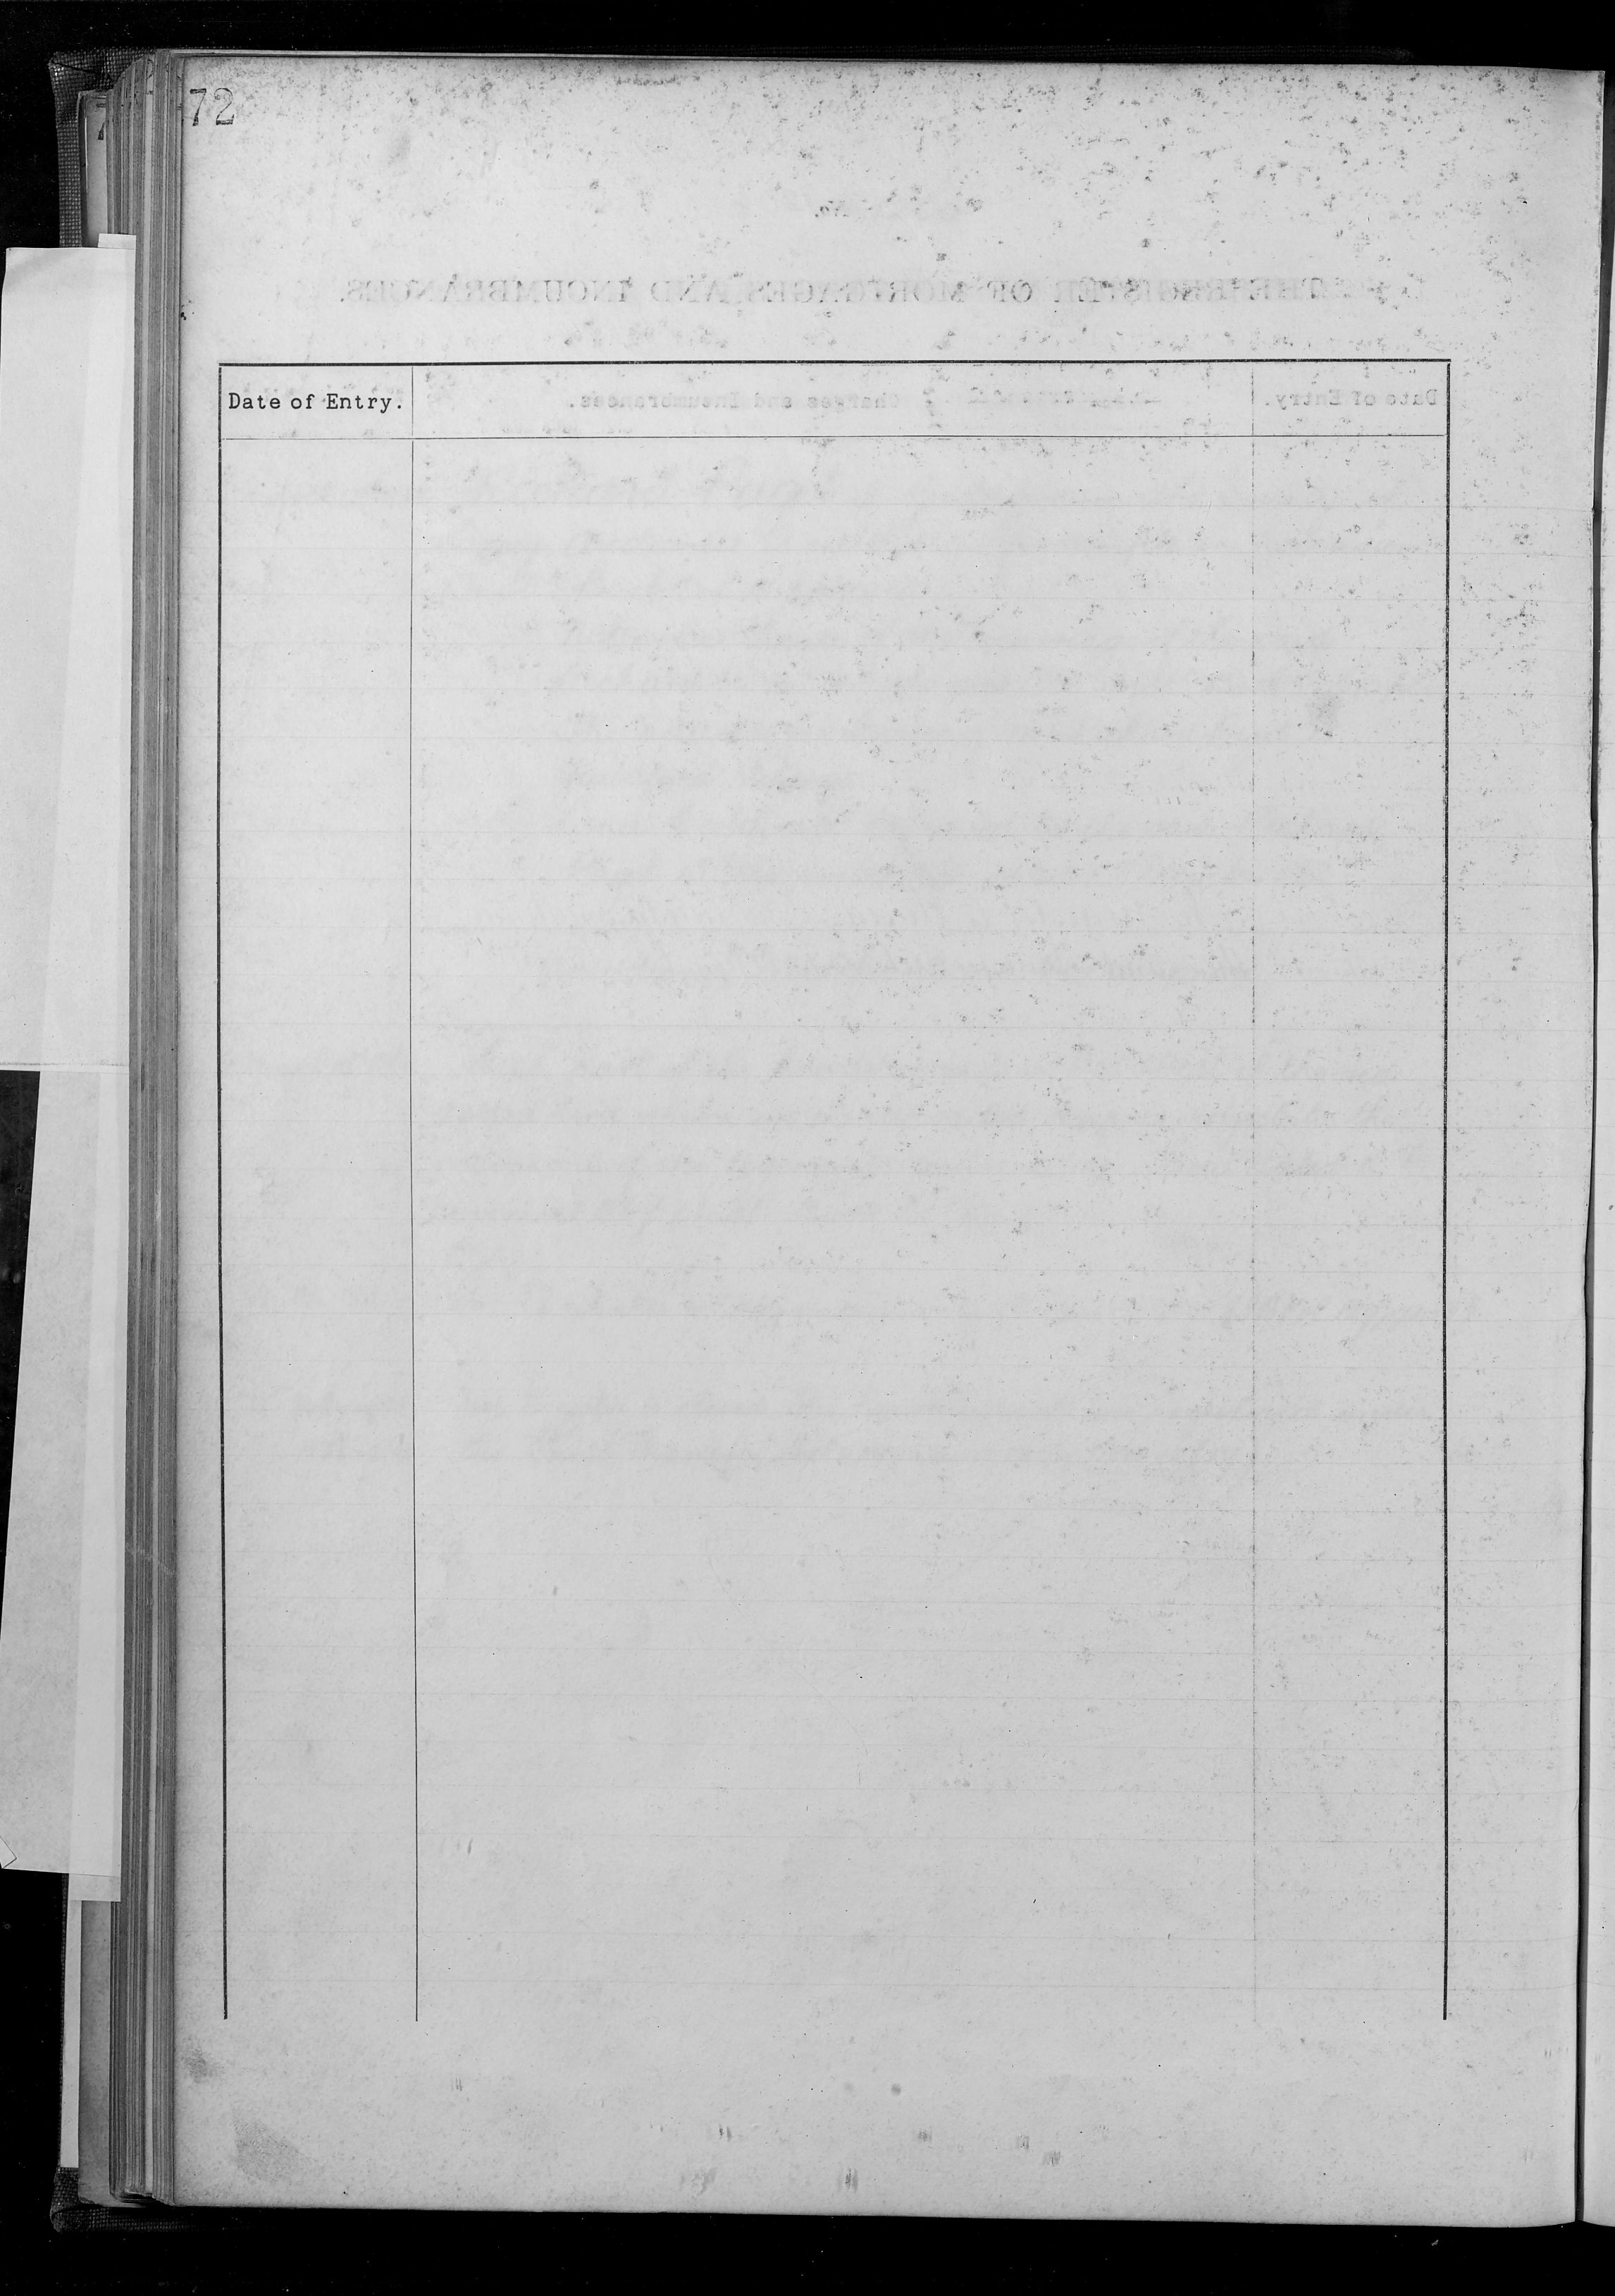 72
Date of Entry.